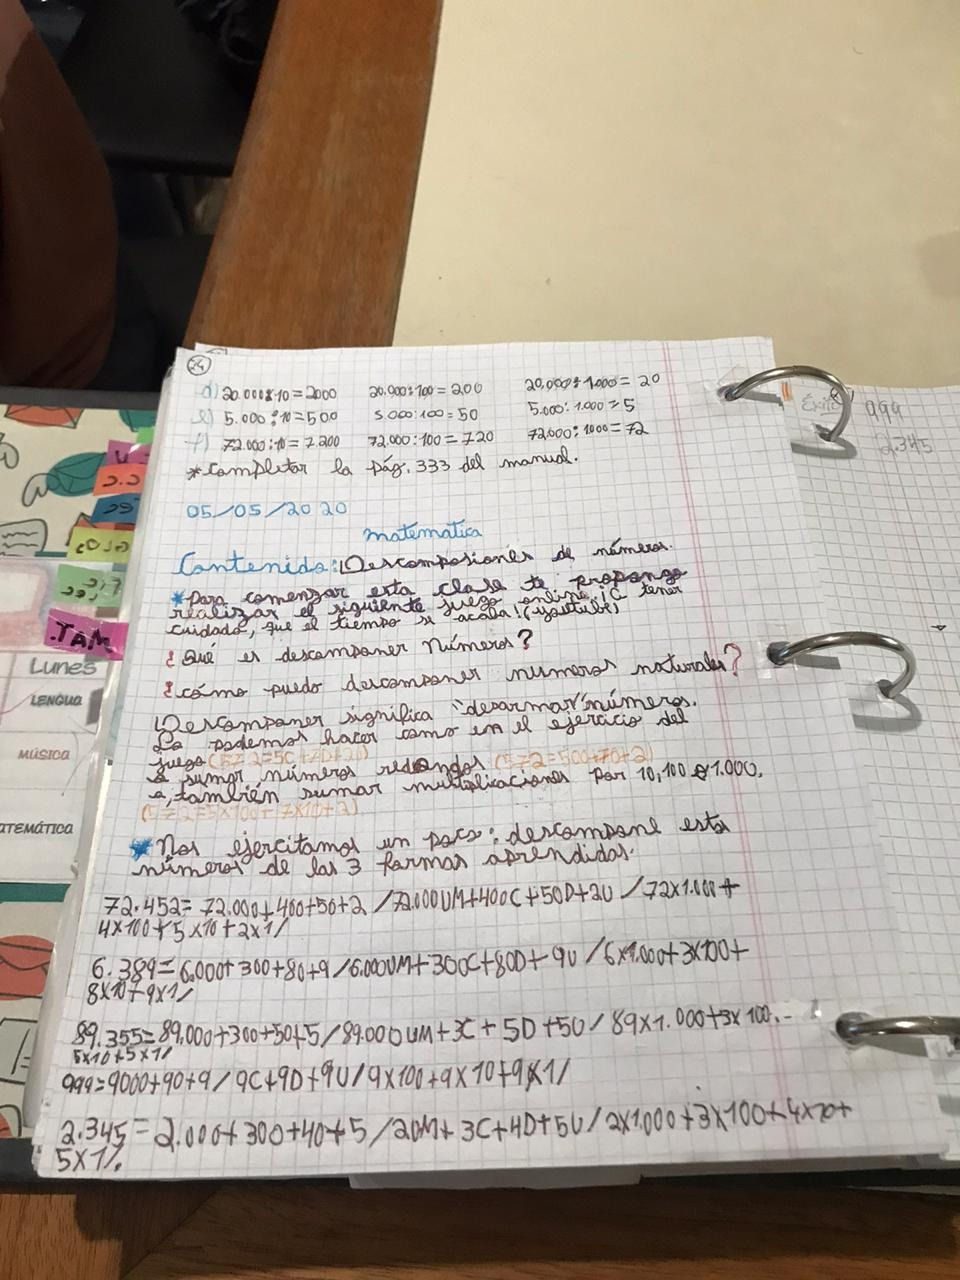 24
d) 20.000:10=2000 20.000:100=200 20.000:1.000=20
e) 5.000:10=500 5.000:100=50 5.000:1.000=5
f) 72.000:10=7.200 72.000:100=720 72.000:1000=72
*Completar la pág. 333 del manual.
05/05/2020
matemática
Contenido: Descomposiones de números.
*Para comenzar esta clase te propongo
realizar el siguiente juego online! a tener
cuidado, que el tiempo se acaba! (youtube)
¿Qué es descomponer números?
¿cómo puedo descomponer numeros naturales?
Descomponer significa "desarmar" números.
Lo podemos hacer como en el ejercicio del
juego (572=5C+7D+2U) (572=500+70+2)
o sumar números redondos
o, también sumar multiplicaciones por 10, 100 o 1.000.
(572=5x100+7x10+2)
*Nos ejercitamos un poco: descompone estos
números de las 3 formas aprendidas.
72.452= 72.000+400+50+2 /72.000UM+400C+50D+2U /72x1.000+
4x100+5x10+2x1/
6.389=6.000+300+80+9 /6.000UM+300C+80D+9U /6x1.000+3x100+
8x10+9x1/
89.355=89.000+300+50+5 /89.000UM+3C+5D+5U/ 89x1.000+3x100.-
5x10+5x1/
999=9000+90+9/ 9C+9D+9U/9x100+9x10+9x1/
2.345=2.000+300+40+5 /20M+3C+4D+5U/2x1.000+3x100+4x10+
5x1/.
Éxito
999
2.345
TAM.
Lunes
LENGUA
MÚSICA
ATEMÁTICA